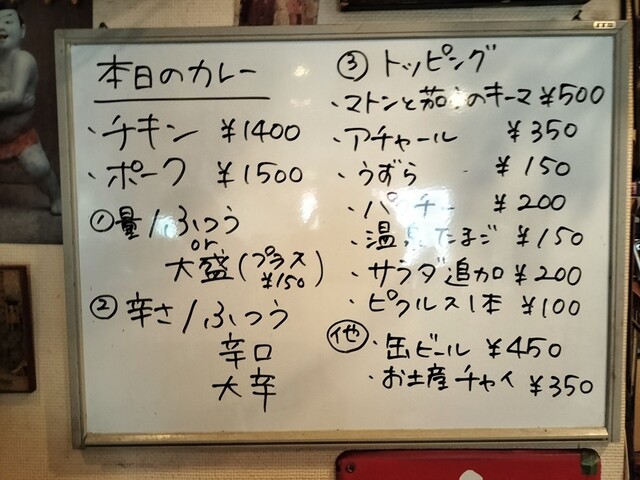 本日のカレー
・チキン ¥1400
・ポーク ¥1500
①量/ふつう
or
大盛(プラス
¥150)
②辛さ/ふつう
辛口
大辛
③トッピング
・マトンと茄子のキーマ ¥500
・アチャール ¥350
・うずら ¥150
・パクチー ¥200
・温泉たまご ¥150
・サラダ追加 ¥200
・ピクルス1本 ¥100
他 ・缶ビール ¥450
・お土産チャイ ¥350